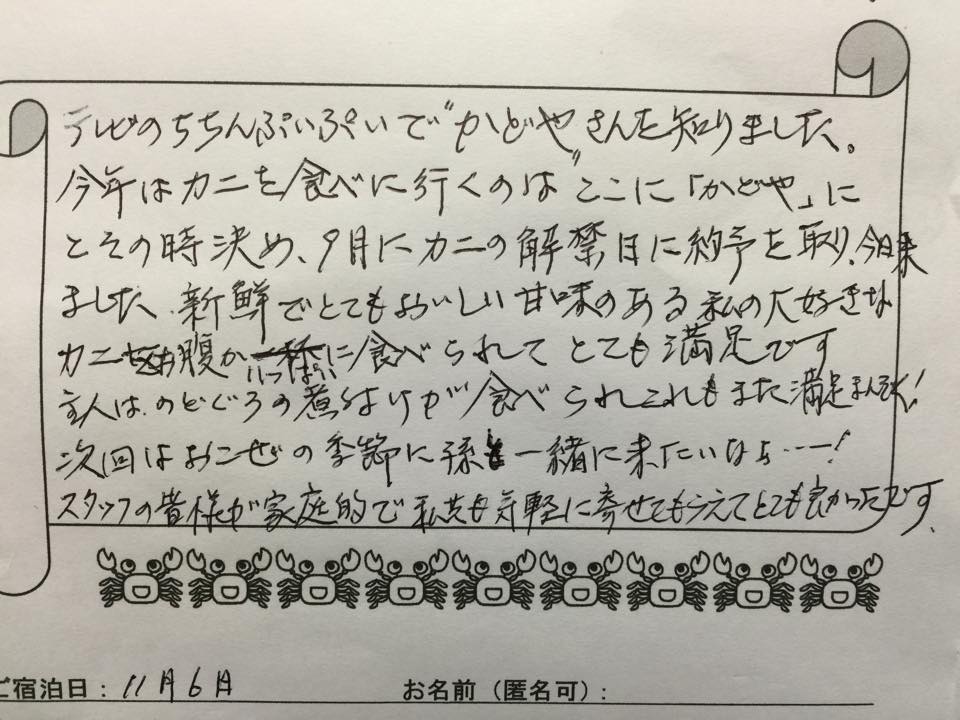 テレビのちちんぷいぷいで"かどや"さんを知りました。
今年はカニを食べに行くのは ここに「かどや」に
とその時決め、9月にカニの解禁日に約予を取り、今日来
ました、新鮮でとてもおいしい甘味のある私の大好きな
カニでお腹がいっぱいに食べられて とても満足です
主人は、のどぐろの煮付けが食べられこれもまた満足まんぞく!
次回はおこぜの季節に孫も一緒に来たいなぁ…ー!
スタッフの皆様が家庭的で私共も気軽に寄せてもらえてとても良かったです、
ご宿泊日:11月6日 お名前(匿名可):